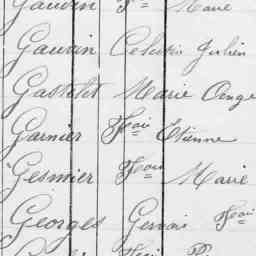 Gauvin Fs Marie
Gauvin Celestin Julien
Gastelet Marie Ange
Garnier Fcois Etienne
Gesmier Fcois Marie
Georges Gervais Fcois